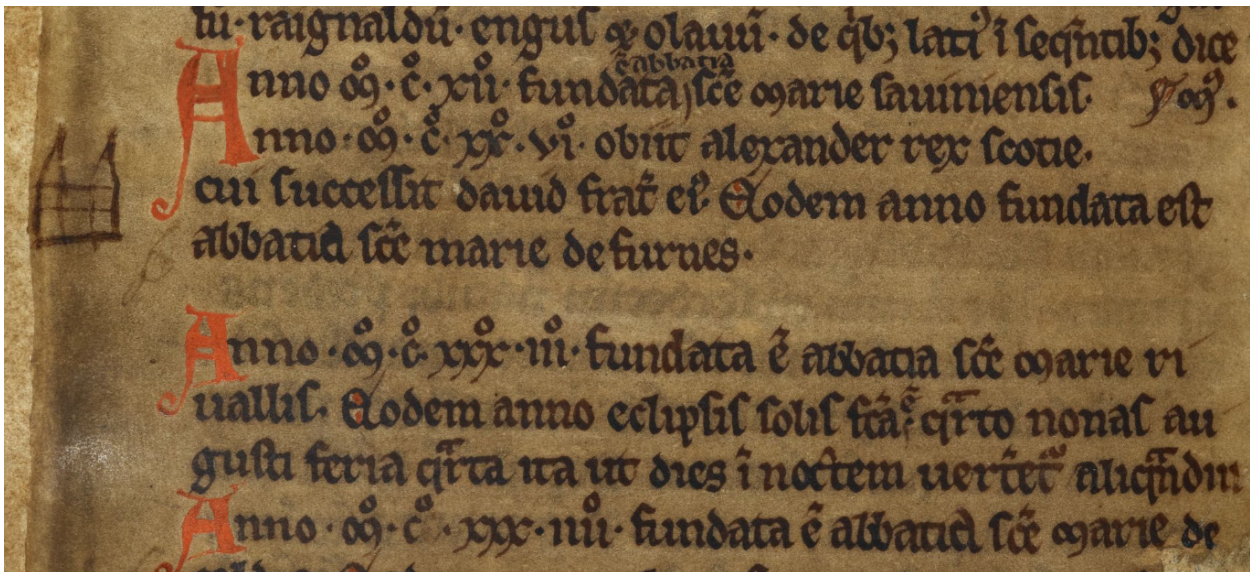 fu· raignaldū· engus ⁊ olauū· de qͥb; lati⁹ ī seqn̄tib; dice
ē abbatia
Anno m̊· c̊· xii̊· fundata sc̄e marie sauiniensis·
Anno· m̊· c̊· xx̊· vi̊· obiit alexander rex scotie·
cui successit dauid frat̄ ei⁹· Eodem anno fundata est
abbatia sc̄e marie de furnes·
Anno · m̊· c̊· xxx̊· iii̊· fundata ē abbatia sc̄e marie ri
uallis· Eodem anno eclipsis solis fc̄a ē qᷓrto nonas au
gusti feria qᷓrta ita ut dies ī noctem uert̄et᷑ aliqᷓndiu
Anno · m̊· c̊ · xxx· iiii̊· fundata ē abbatia sc̄e marie de